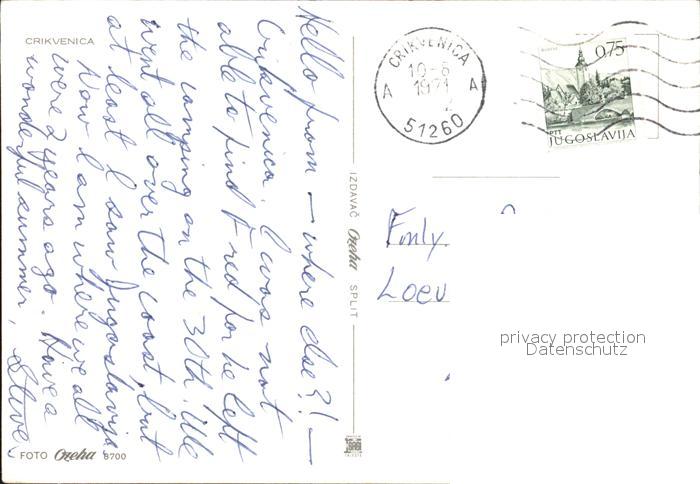 CRIKVENICA
Hello from – where else?! –
Crikvenica. I was not
able to find Fred for he left
the camping on the 30th. We
went all over the coast, but
at least I saw Jugoslavija
Now I am where we all
were 2 years ago. Have a
wonderful summer, Steve.
FOTO Ozeha 8700
IZDAVAČ Ozeha SPLIT
CRIKVENICA
10-6
1971
2
A A
51260
0,75
PTT
JUGOSLAVIJA
Emly
Loeu
privacy protection
Datenschutz